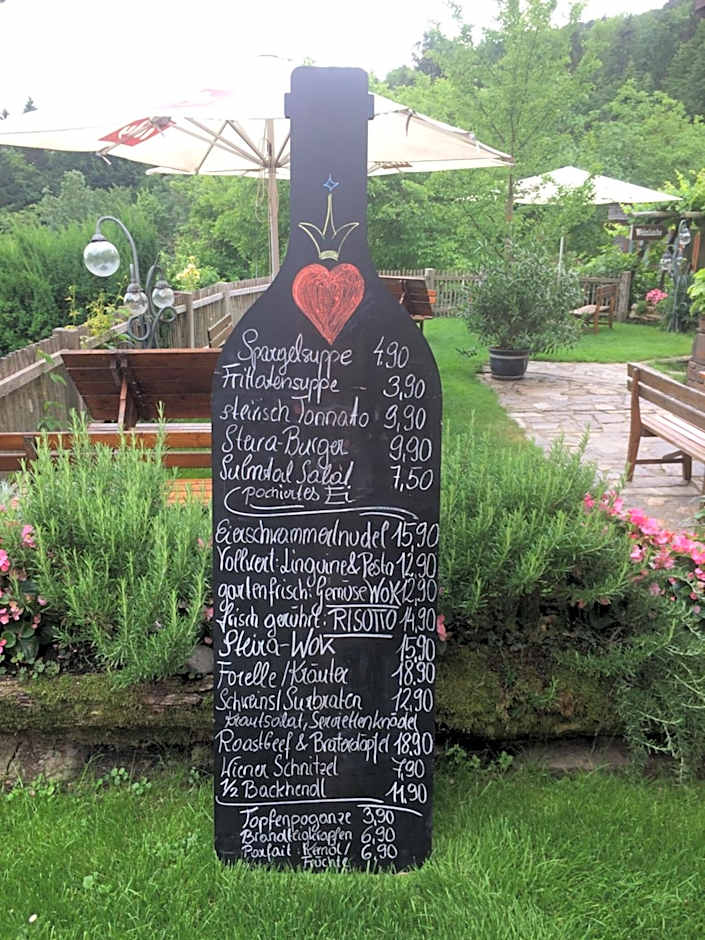 Spargelsuppe 4,90
Frittatensuppe 3,90
steirisch Tonnato 9,90
Steira-Burger 9,90
Sulmtal Salat 7,50
pochiertes Ei
Eierschwammerlnudel 15,90
Vollwert: Linguine & Pesto 12,90
gartenfrisch: Gemüse WOK 12,90
frisch gerührt: RISOTTO 14,90
Steira-Wok 15,90
Forelle / Kräuter 18,90
Schweinsl Surbraten 12,90
Krautsalat, Serviettenknödel
Roastbeef & Braterdäpfel 18,90
Wiener Schnitzel 7,90
1/2 Backhendl 11,90
Topfenpoganze 3,90
Brandteigkrapfen 6,90
Parfait: Kernöl / 6,90
Früchte